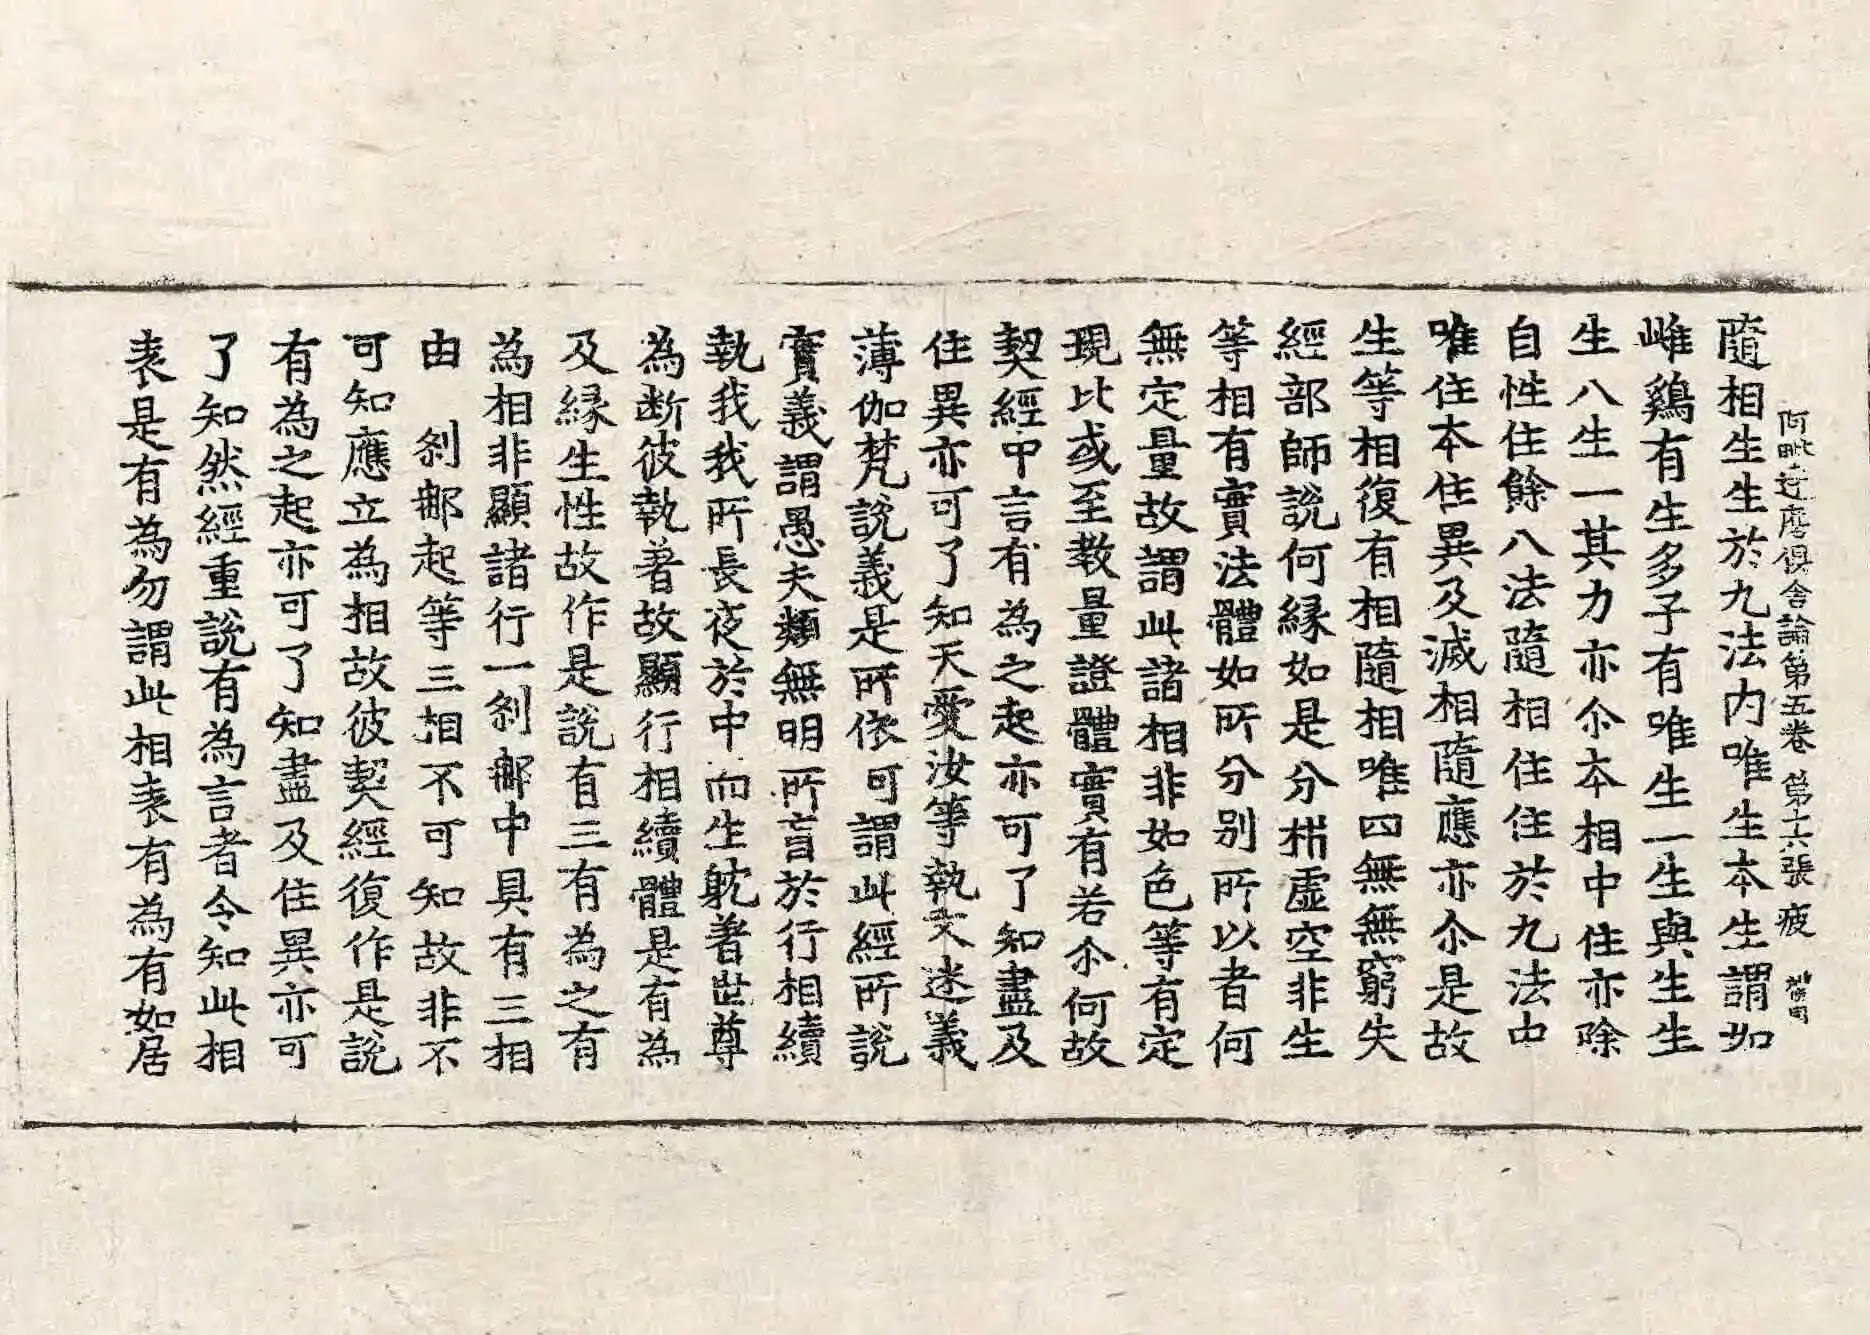 阿毗達磨俱舍論第五卷 第十六張 疲
隨相生生於九法内唯生本生謂如
雌鷄有生多子有唯生一生與生生
生八生一其力亦尒本相中住亦除
自性住餘八法隨相住住於九法中
唯住本住異及滅相隨應亦尒是故
生等相復有相隨相唯四無無窮失
經部師說何緣如是分枿虛空非生
等相有實法體如所分別所以者何
無定量故謂此諸相非如色等有定
現比或至教量證體實有若尒何故
契經中言有為之起亦可了知盡及
住異亦可了知天愛汝等執文迷義
薄伽梵說義是所依何謂此經所說
實義謂愚夫類無明所盲於行相續
執我我所長夜於中而生躭著世尊
為断彼執著故顯行相續體是有為
及緣生性故作是說有三有為之有
為相非顯諸行一剎那中具有三相
由一剎那起等三相不可知故非不
可知應立為相故彼契經復作是說
有為之起亦可了知盡及住異亦可
了知然經重說有為言者令知此相
表是有為勿謂此相表有為有如居